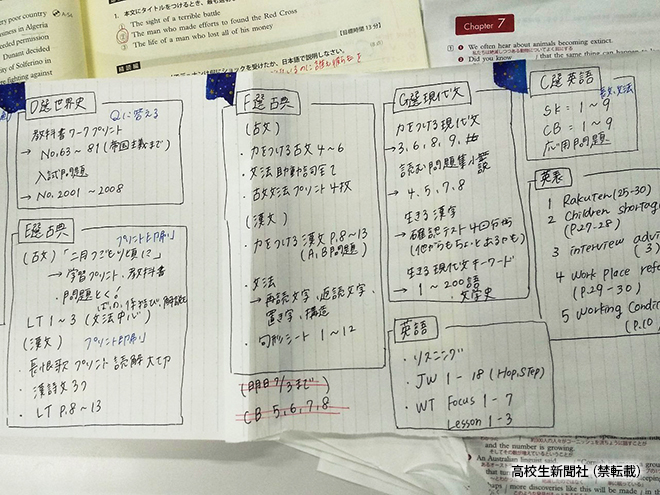 poor country
business in Algeria
needed permission
Dunant decided
of Solferino in
were fighting against
A-54
1. 本文にタイトルをつけるとき、最も
① The sight of a terrible battle
② The man who made efforts to found the Red Cross
③ The life of a man who lost all of his money
(目標時間 13 分)
ショックを受けたか、日本語で説明しなさい。
Chapter 7
1 We often hear about animals becoming extinct.
2 Did you know
that the same thing can happen to
D選世界史
Qに答える
教科書ワークプリント
→ No,63 ~ 81 (帝国主義まで)
入試問題
→ No. 2001 ~ 2008
E選古典
プリント印刷
(古文)「二月つごもり頃に」
→ 学習プリント、教科書
・問題とく!
LT 1~3 (文法中心)
(漢文) プリント印刷
・長恨歌 プリント 読解大切
・漢詩文 3つ
・LT P.8~13
F選古典
(古文)
・力をつける古文 4~6
・文法 助動詞全て
・古文文法プリント 4枚
(漢文)
・力をつける漢文 P.8~13
(A,B問題)
・文法
→ 再読文字、返読文字、
置き字、構造
・句形シート 1~12
(明日 7/3まで)
CB 5,6,7,8
G選現代文
力をつける現代文
→ 3,6,8,9,
読む問題集 小説
→ 4,5,7,8
生きる漢字
→ 確認テスト 4回分から
(他からもちょっとあるかも)
生きる現代文キーワード
→ 1~200語
・文学史
英語
・リスニング
・JW 1-18 (Hop,Step)
・WT Focus 1-7
Lesson 1-3
C選英語
長文,文法
SK = 1~9
CB = 1~9
応用問題
英表
1 Rakuten (25-30)
2 Children shortage
(P.27-28)
3 interview advi
(3)
4 Work Place refo
(P.29-30)
5 Working Condit
(P.10
and the number is growing.
An Australian linguist said,
more discoveries like this will be made
高校生新聞社 (禁転載)